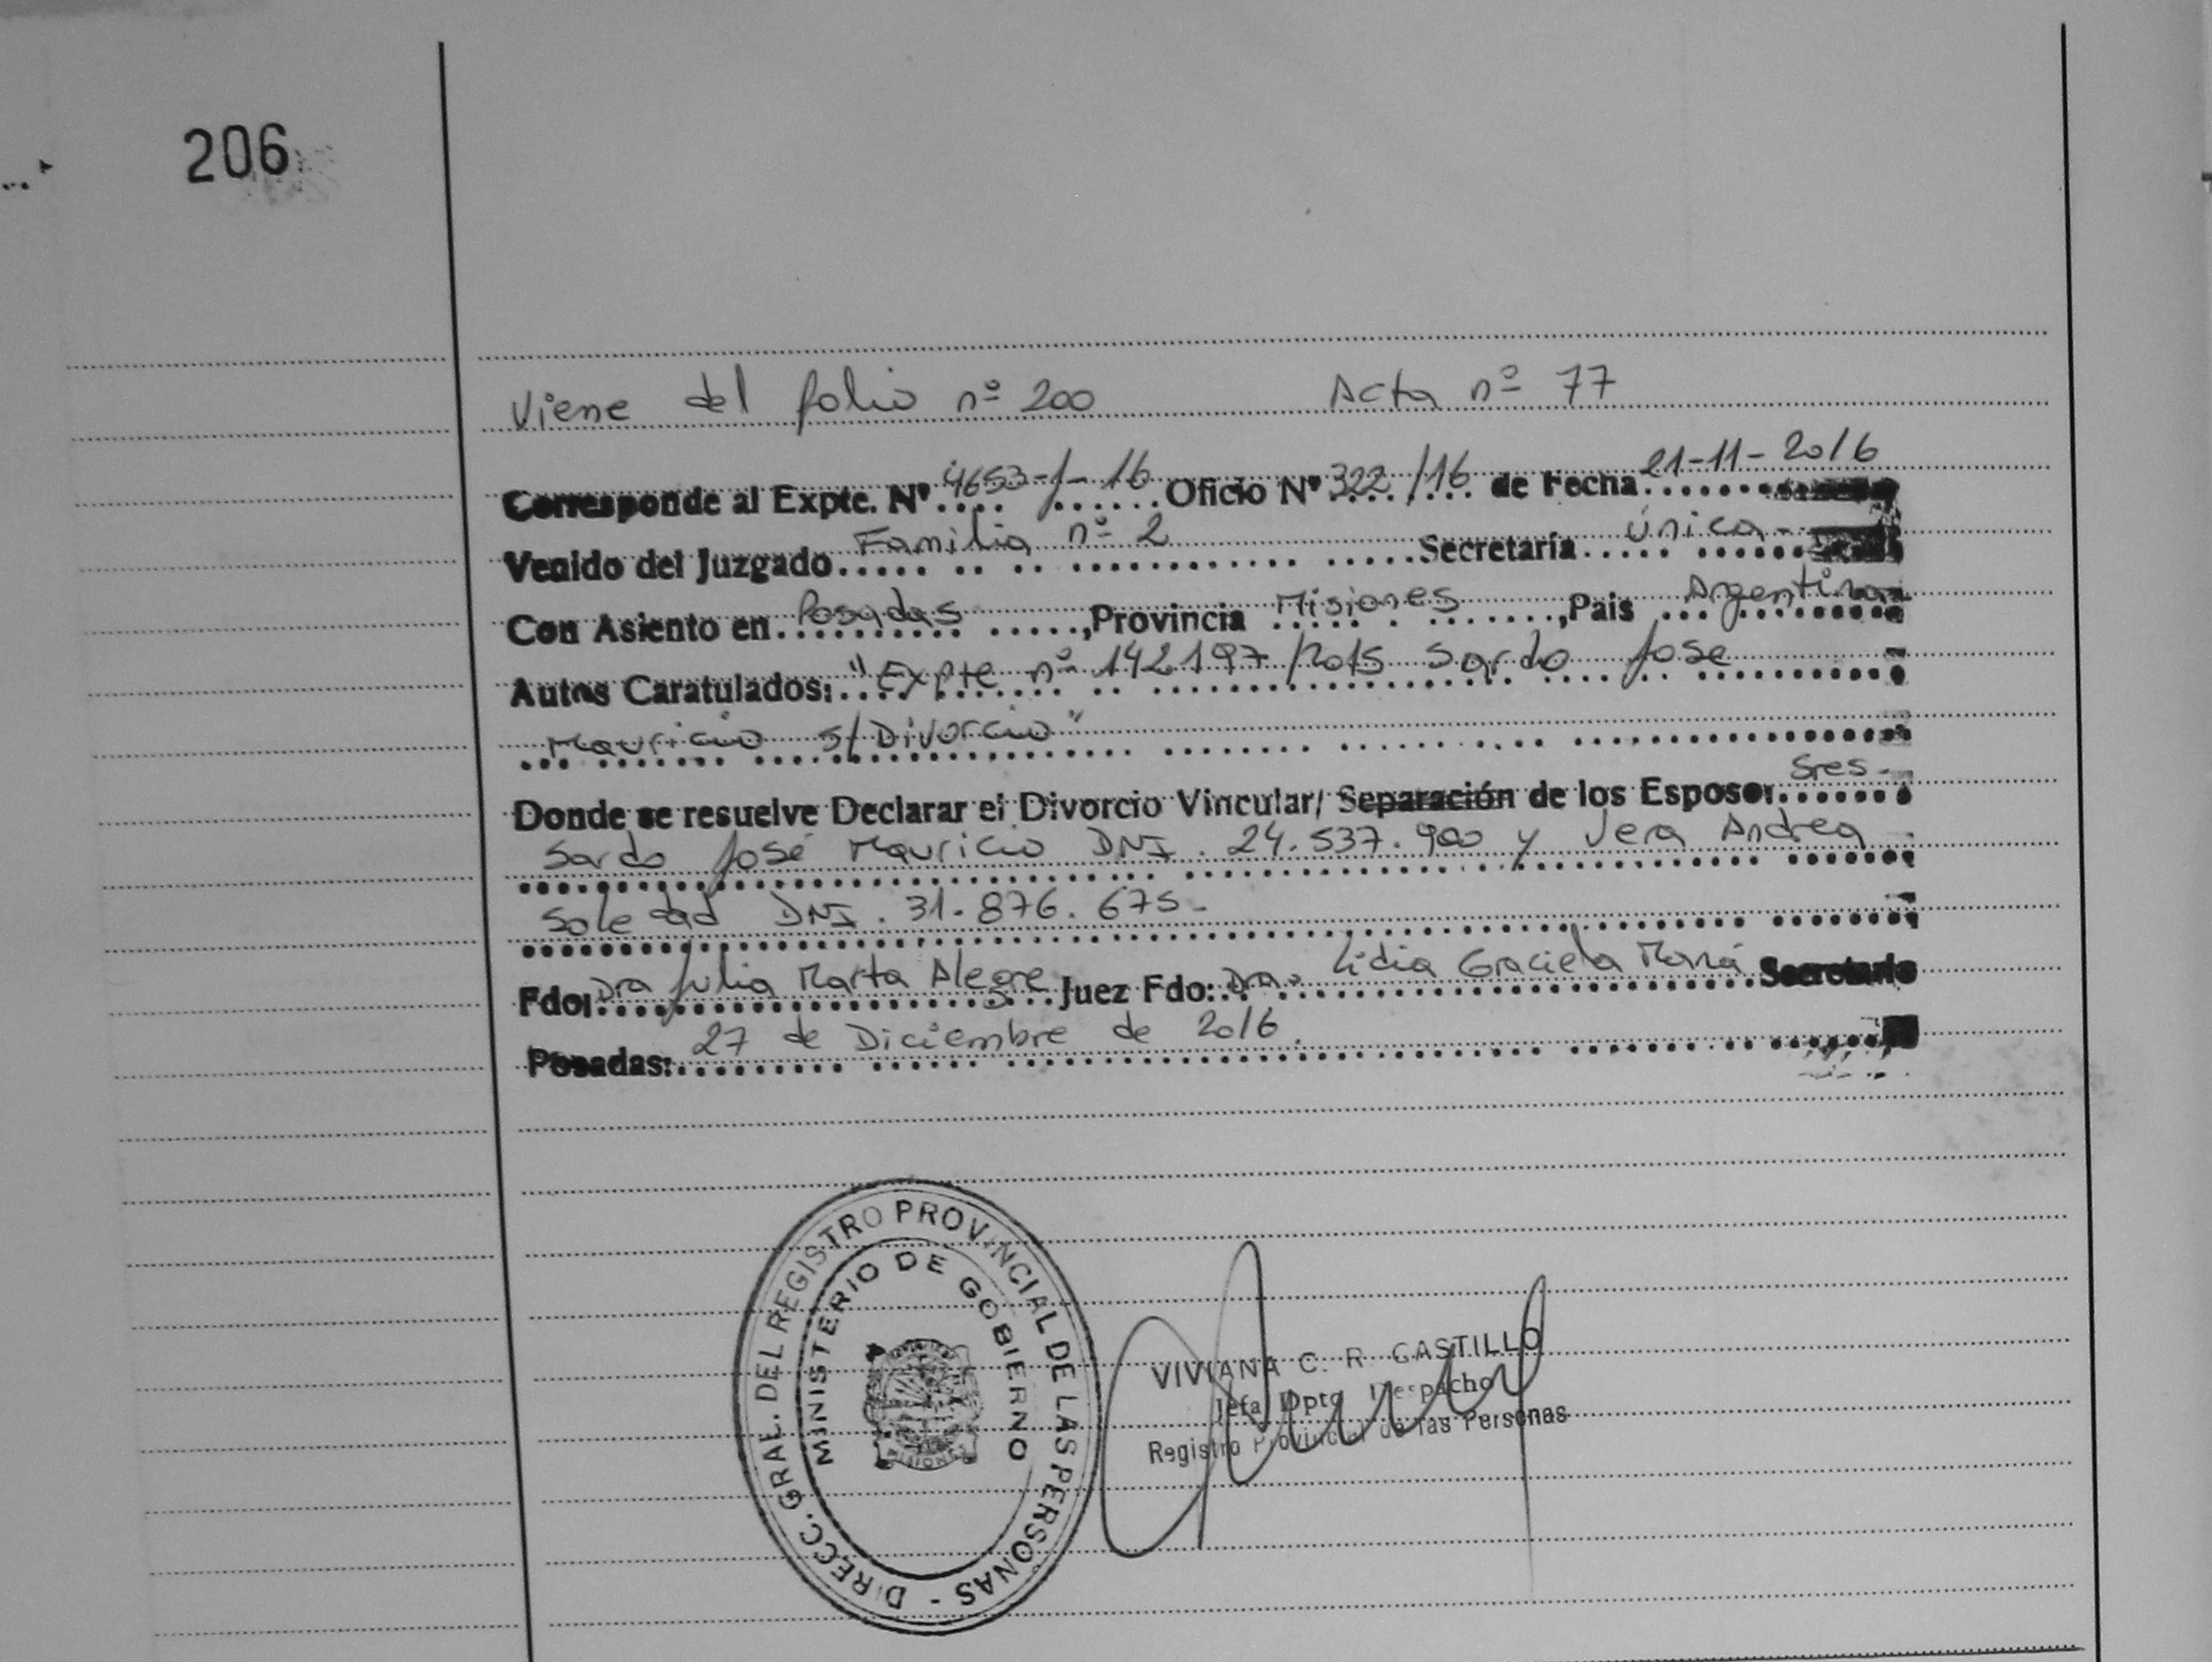 206
Viene del folio nº 200 Acta nº 77
Corresponde al Expte. Nº 4653-J-16 Oficio Nº 322/16 de Fecha 21-11-2016
Venido del Juzgado Familia nº 2 Secretaría Única-
Con Asiento en Posadas, Provincia Misiones, País Argentina
Autos Caratulados: "Expte nº 142197/2015 Sardo José
Mauricio s/Divorcio"
Donde se resuelve Declarar el Divorcio Vincular/ Separación de los Esposos. Sres.
Sardo José Mauricio DNI. 24.537.900 y Vera Andrea
Soledad DNI. 31.876.675-
Fdo: Dra Julia Marta Alegre Juez Fdo: Dra. Lidia Graciela Secretario
Posadas: 27 de Diciembre de 2016.
DIRECC. GRAL. DEL REGISTRO PROVINCIAL DE LAS PERSONAS -
MINISTERIO DE GOBIERNO
MISIONES
VIVIANA C. R. CASTILLO
Jefa Dpto Despacho
Registro Provincial de las Personas